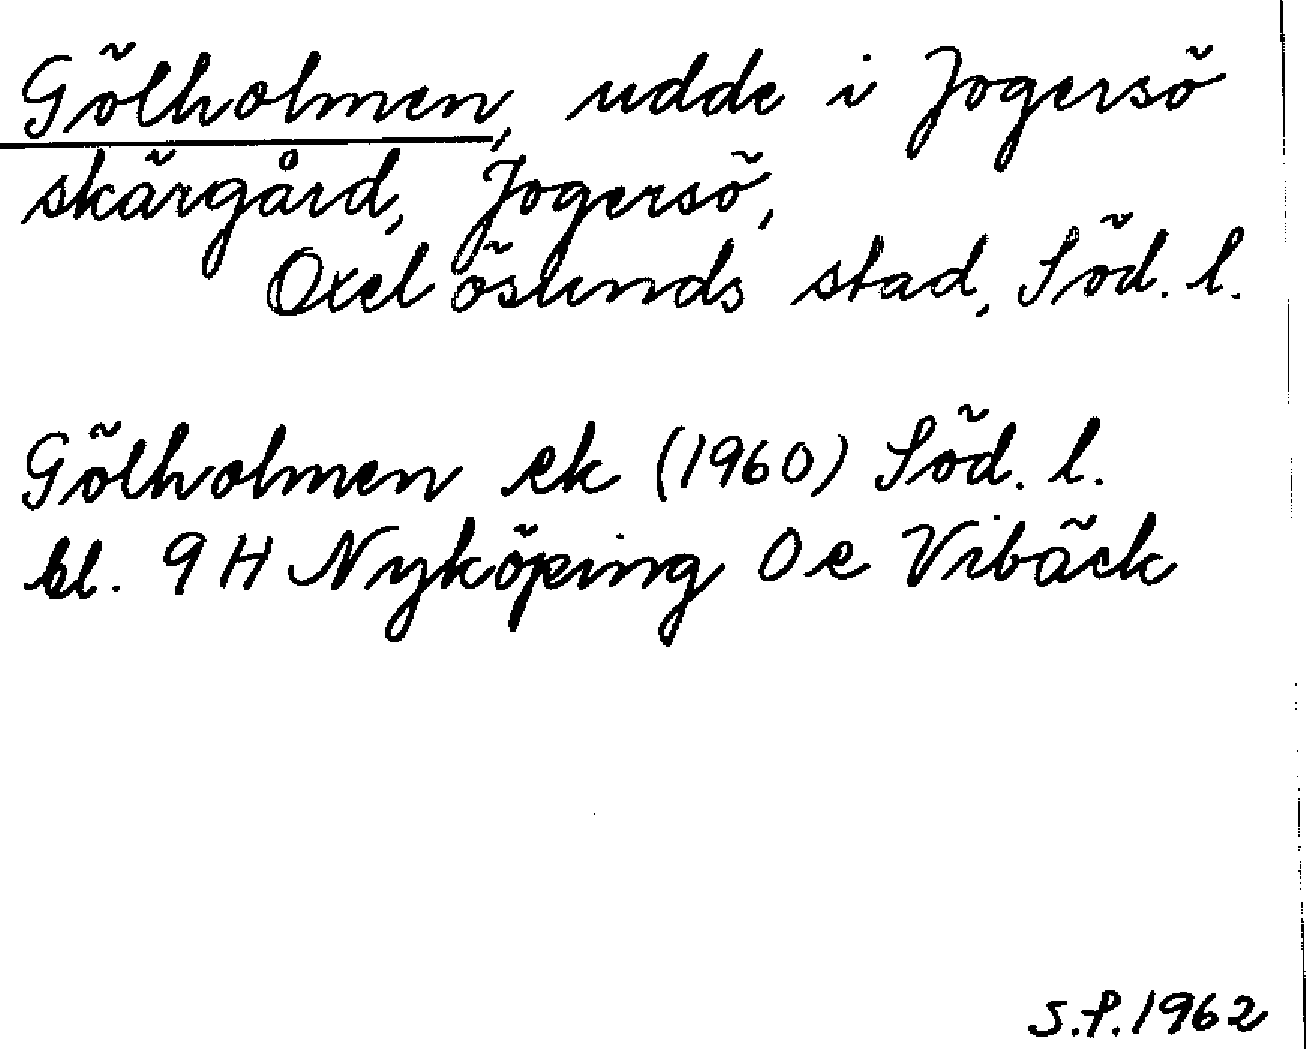 Gölholmen, udde i Jogersö
skärgård, Jogersö,
Oxelösunds stad, Söd. l.
Gölholmen ek (1960) Söd. l.
bl. 9 H Nyköping Oe Vibäck
S.P. 1962